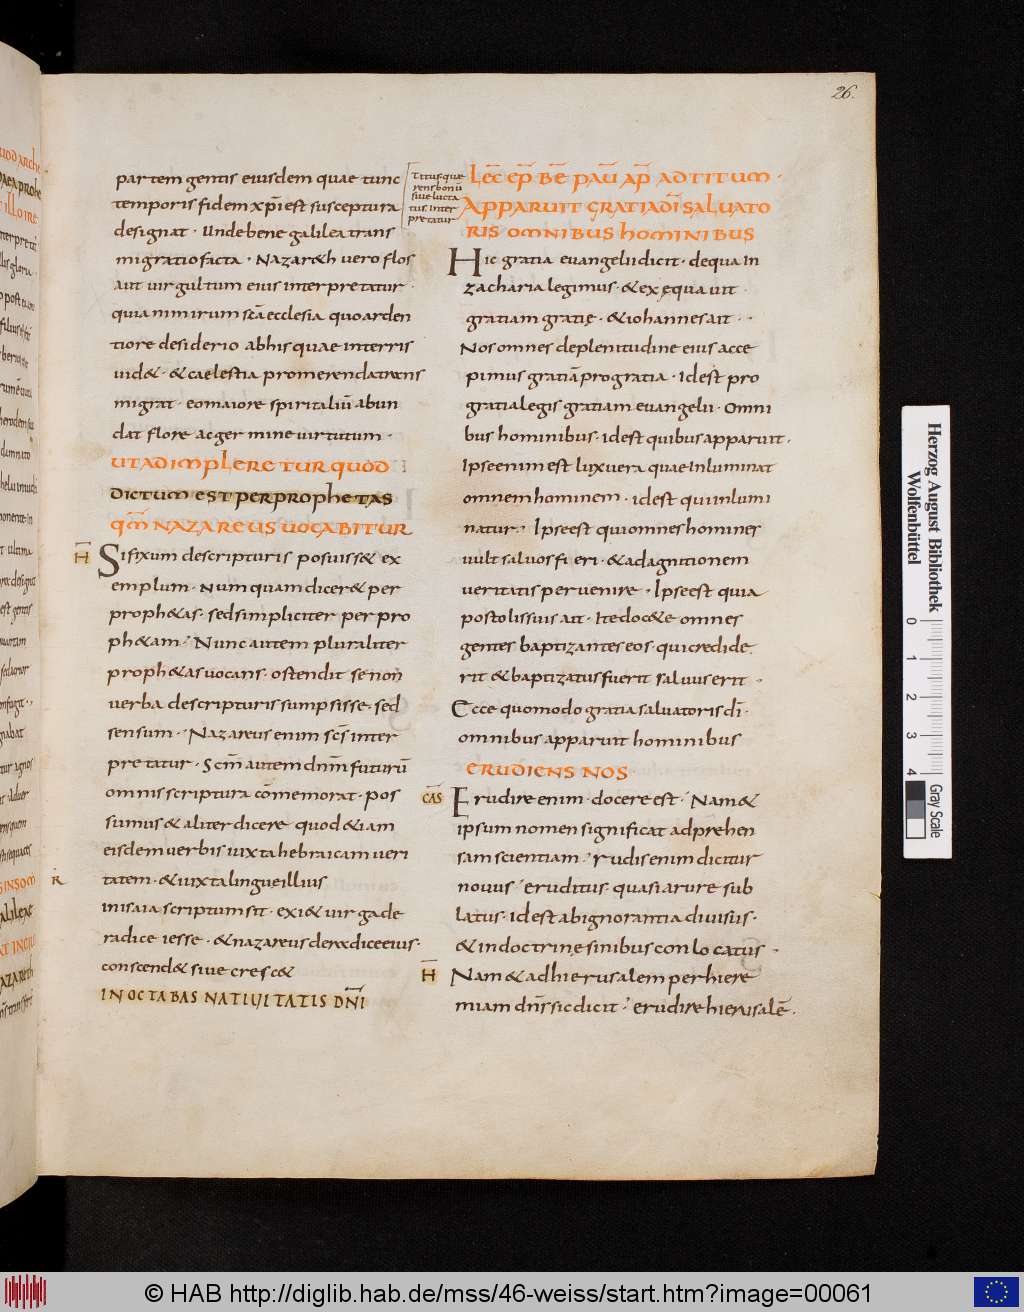 26.
partem gentis eiusdem quae tunc
temporis fidem xp̄i est susceptura
designat · Unde bene galilea trans
migratio facta · Nazar&h vero flos
aut virgultum eius interpretatur ·
quia nimirum sc̄a ecclesia quo arden
tiore desiderio ab his quae in terris
uid& · & caelestia promerenda trans
migrat · eo maiore spiritaliū abun
dat flore ac germine virtutum ·
UT ADIMPLERETUR QUOD
DICTUM EST PER PROPHETAS
QM̄ NAZAREUS UOCABITUR
H
Si fixum de scripturis posuiss& ex
emplum · Numquam dicer& per
proph&as · sed simpliciter per pro
ph&am · Nunc autem pluraliter
proph&as uocans · ostendit se non
verba de scripturis sumpsisse · sed
sensum · Nazareus enim sc̄s inter
pretatur · Sc̄m autem dn̄m futurū
omnis scriptura cōmemorat · Pos
sumus & aliter dicere quod &iam
eisdem verbis iuxta hebraicam veri
tatem · & iuxta lingue illius
R
in isaia scriptum sit · exi& uir ga de
radice iesse · & nazareus de radice eius ·
conscend& siue cresc&
IN OCTABAS NATIUITATIS DN̄I
Titus quae
rens bonū
siue lucta
tus inter
pretatur
LEC̄ EP̄ BĒ PAŪ AP̄ AD TITUM ·
APPARUIT GRATIA DĪ SALUATO
RIS OMNIBUS HOMINIBUS
Hic gratia evangelii dicit · de qua in
zacharia legimus · & exequauit
gratiam gratię · & iohannes ait ·
Nos omnes de plenitudine eius acce
pimus gratiā pro gratia · Id est pro
gratia legis gratiam evangelii · Omni
bus hominibus · id est quibus apparuit ·
Ipse enim est lux vera quae inluminat
omnem hominem · id est qui inlumi
natur · Ipse est qui omnes homines
vult saluos fieri · & ad agnitionem
veritatis pervenire · Ipse est quia
postolis suis ait · Ite doc&e omnes
gentes baptizantes eos · qui credide
rit & baptizatus fuerit saluus erit ·
Ecce quomodo gratia saluatoris dī ·
omnibus apparuit hominibus
ERUDIENS NOS
CAS
Erudire enim · docere est · Nam &
ipsum nomen significat adprehen
sam scientiam · rudis enim dicitur
nouus · eruditus quasi a rure sub
latus · id est ab ignorantia diuisus ·
& in doctrinę sinibus conlocatus ·
H
Nam & ad hierusalem per hiere
miam dn̄s sic dicit · erudire hierusalē ·
Herzog August Bibliothek
Wolfenbüttel
0 1 2 3 4
Gray Scale
© HAB http://diglib.hab.de/mss/46-weiss/start.htm?image=00061